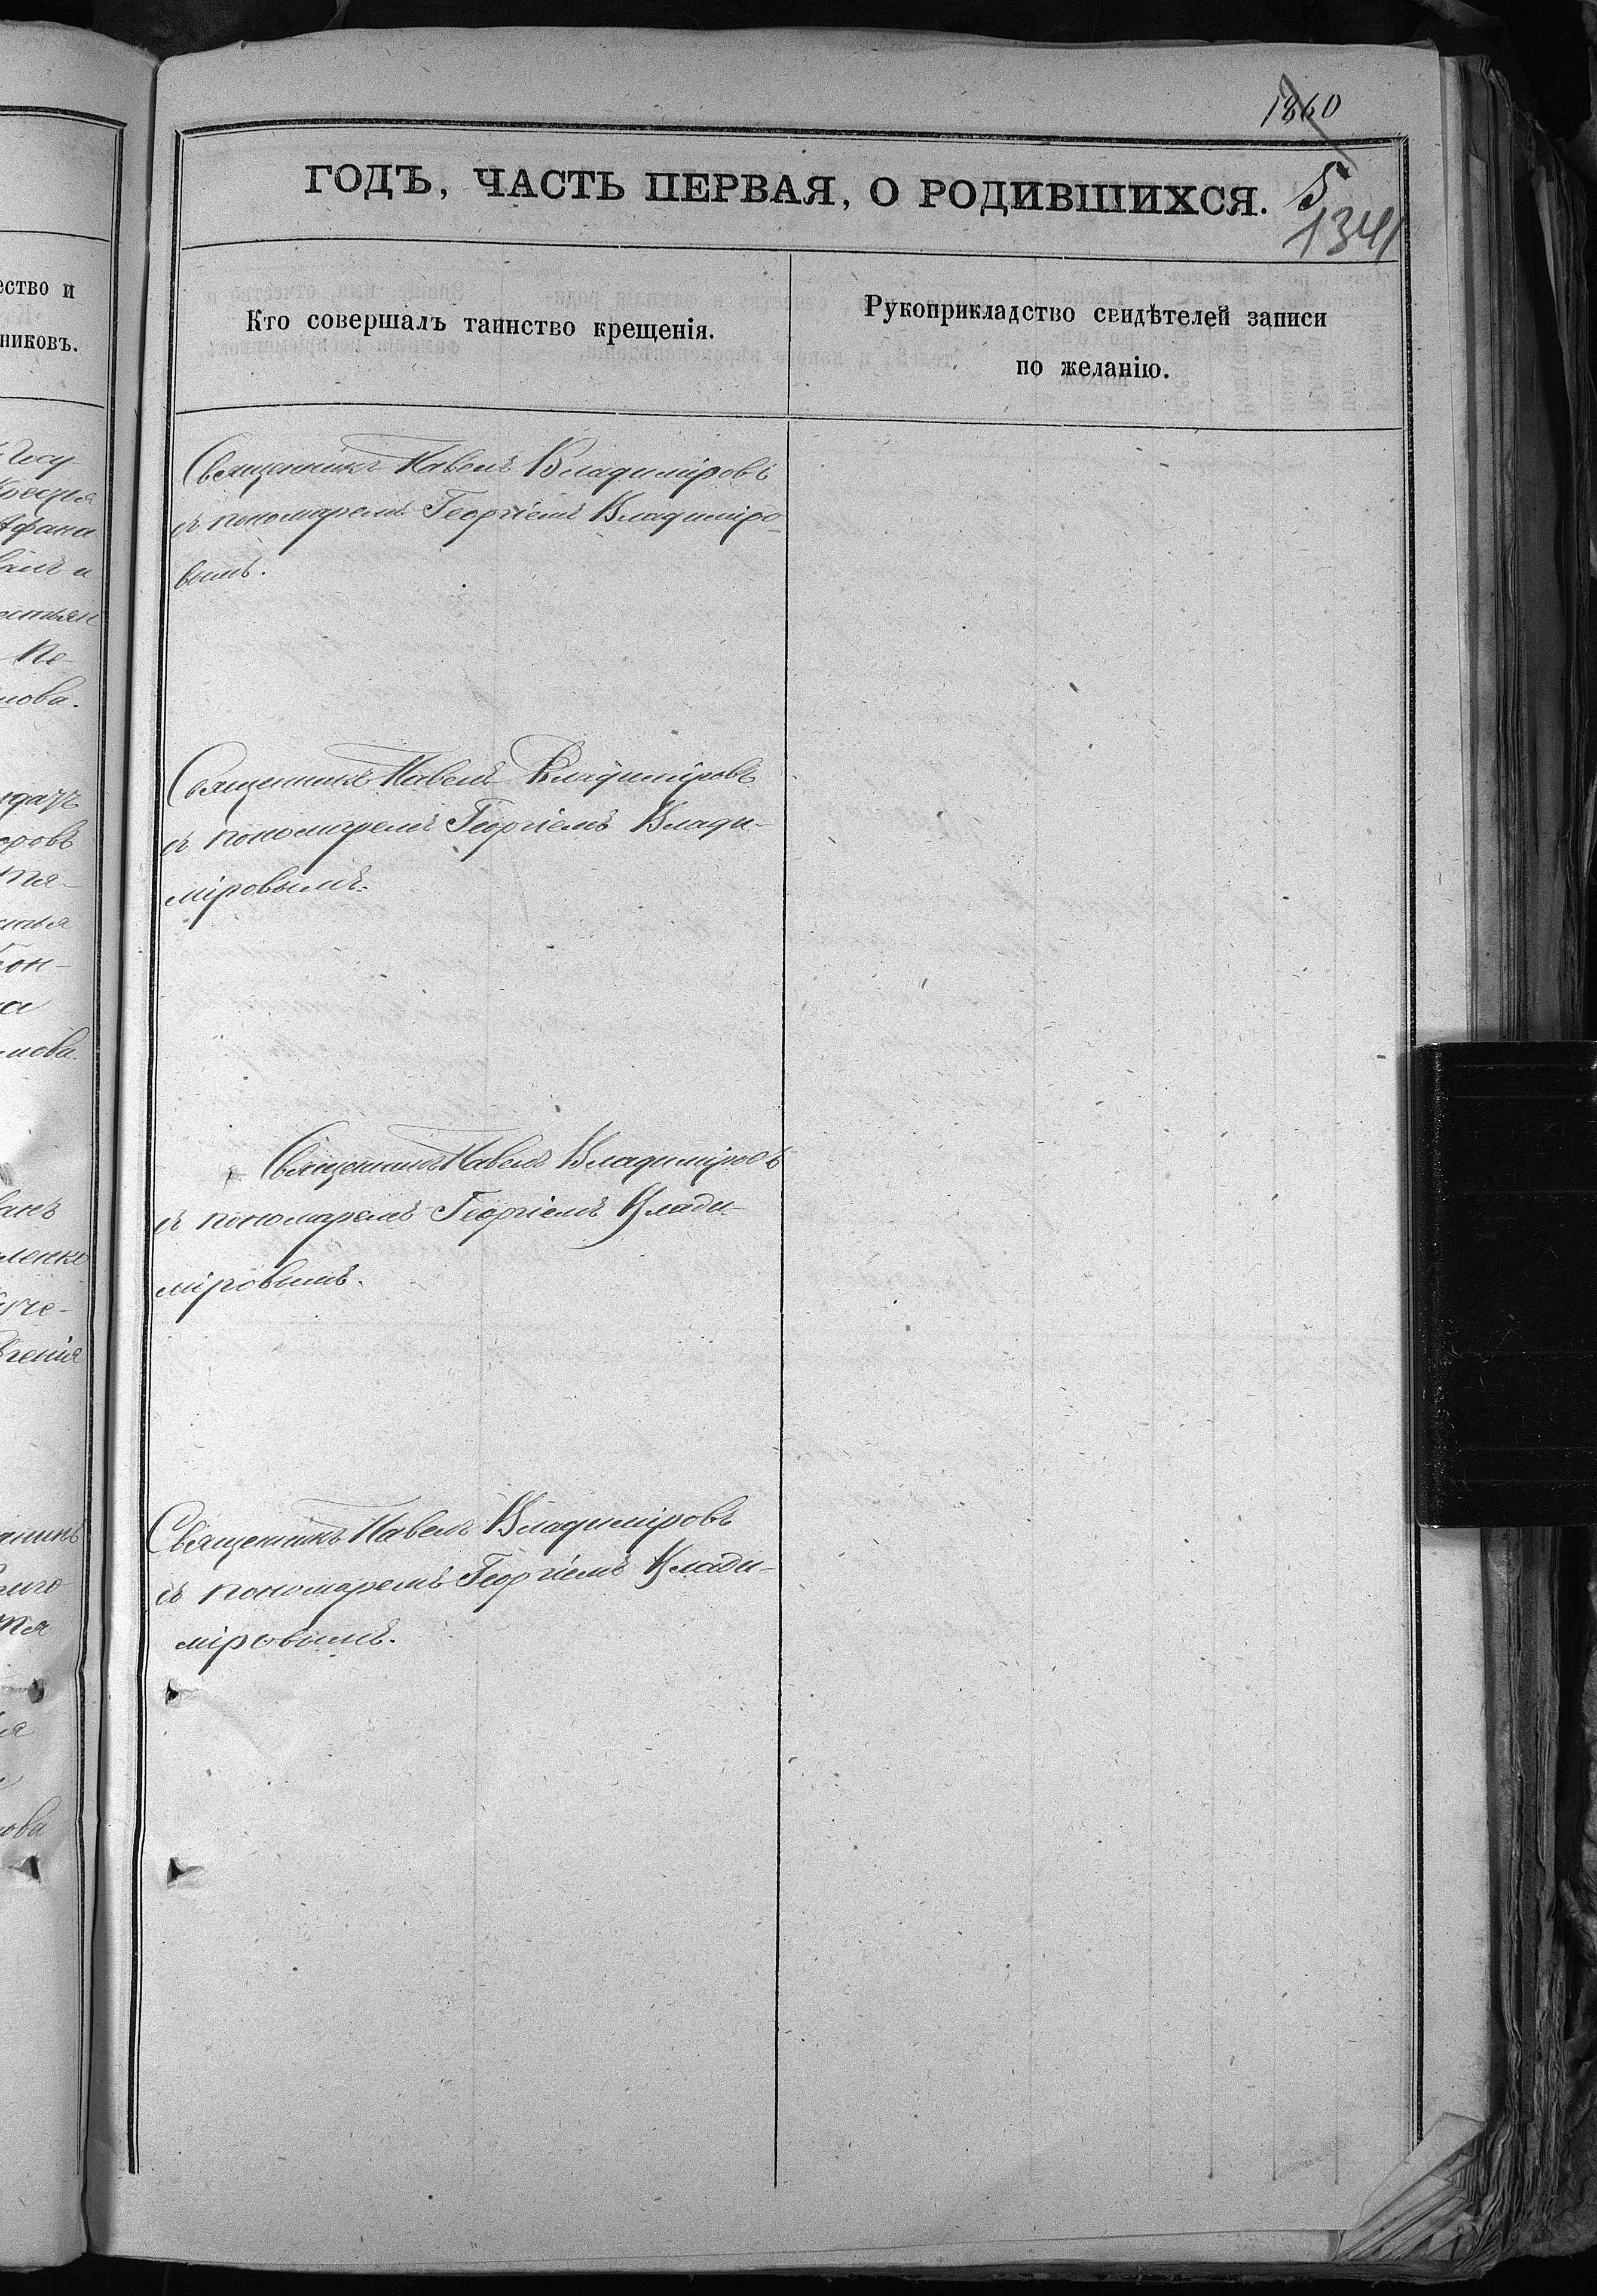 1860
ГОДЪ, ЧАСТЬ ПЕРВАЯ, О РОДИВШИХСЯ.
5
1341
Кто совершалъ таинство крещенія.
Рукоприкладство свидѣтелей записи
по желанію.
ство и
никовъ.
Священникъ Павелъ Владиміровъ
съ пономаремъ Георгіемъ Владиміро-
вымъ.
Священникъ Павелъ Владиміровъ
съ пономаремъ Георгіемъ Влади-
міровымъ.
Священникъ Павелъ Владиміровъ
съ пономаремъ Георгіемъ Влади-
міровымъ.
Священникъ Павелъ Владиміровъ
съ пономаремъ Георгіемъ Влади-
міровымъ.